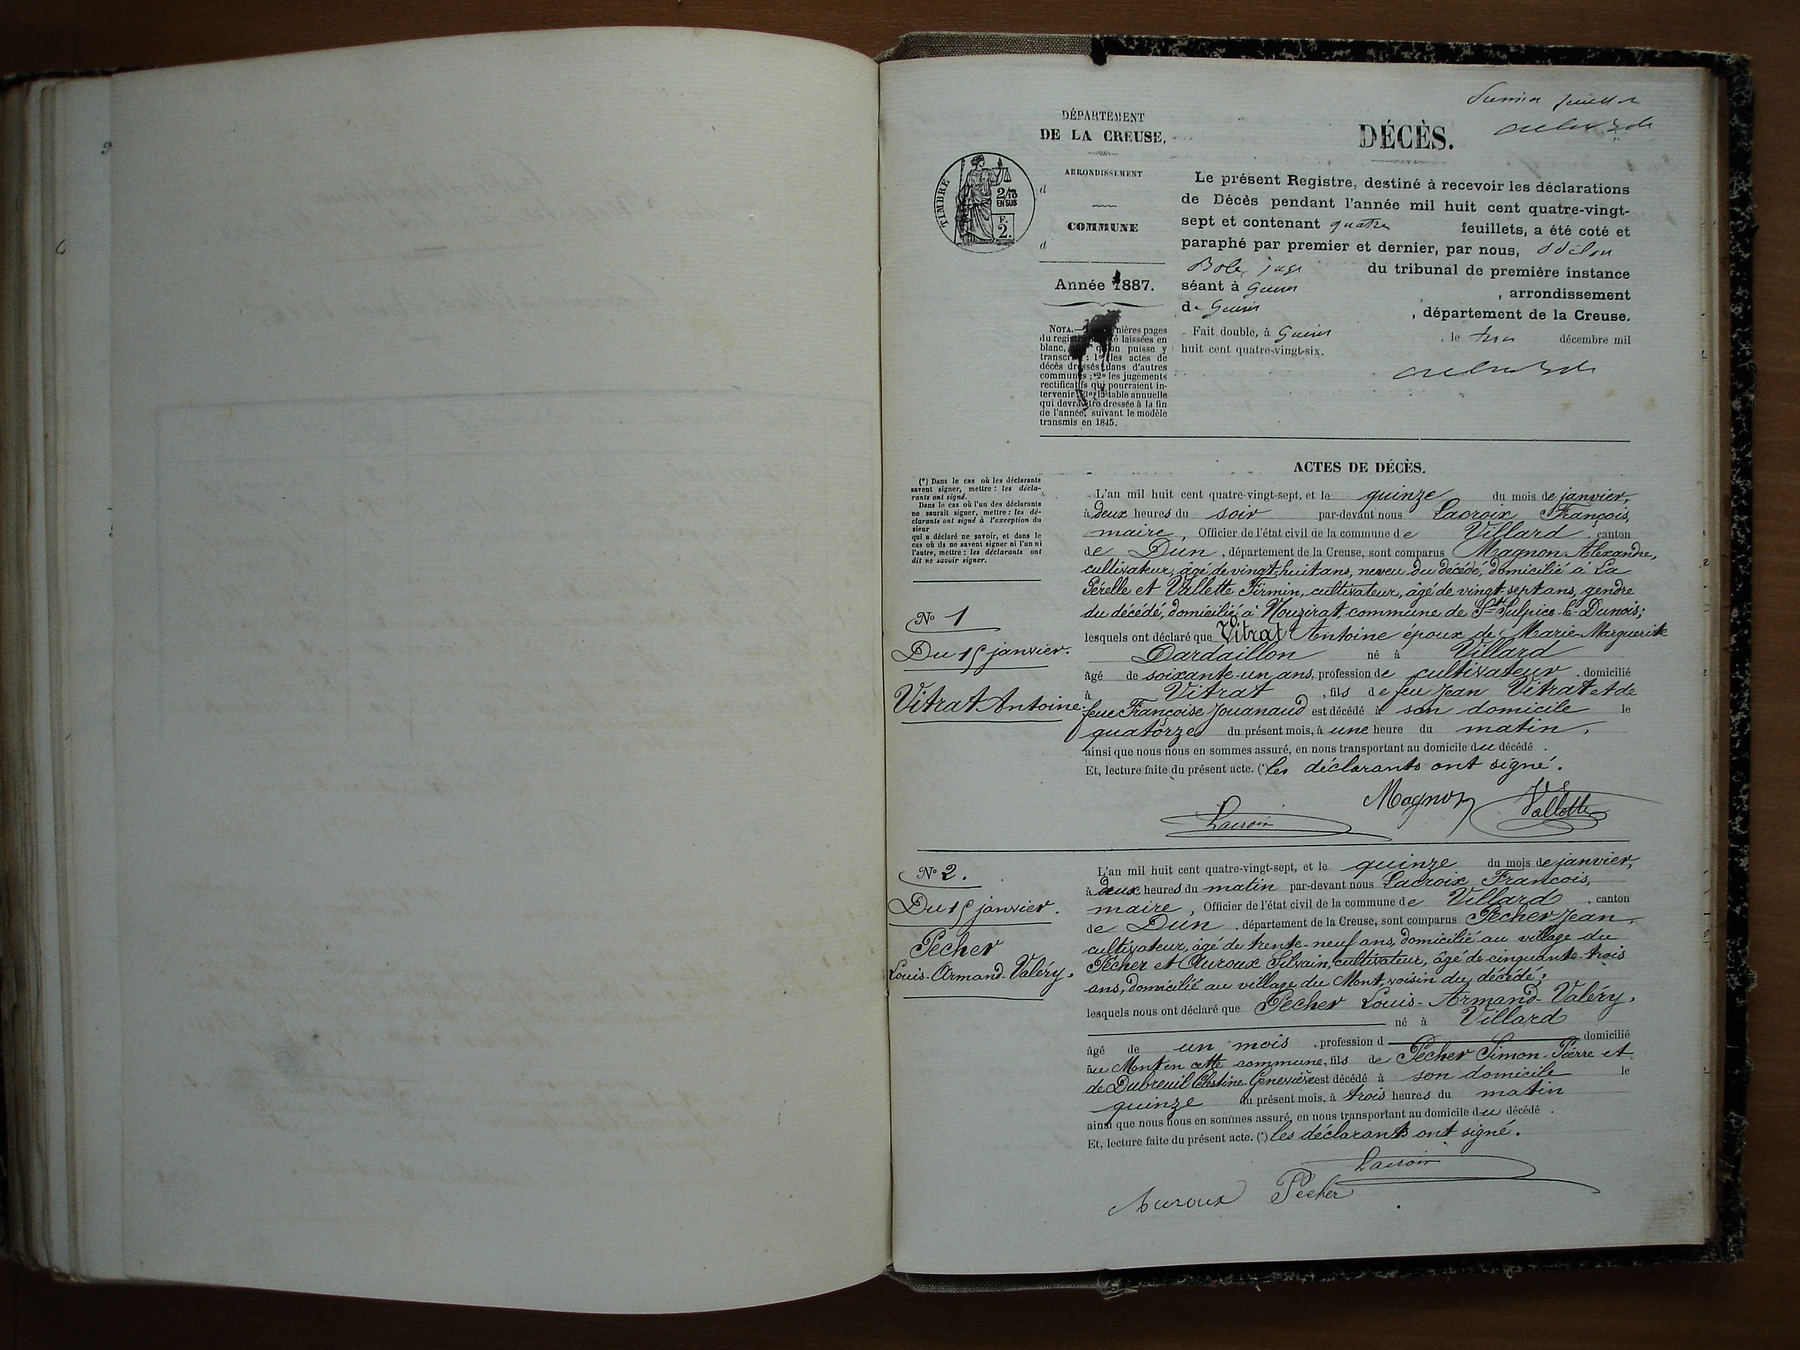 Premier feuillet
DÉPARTEMENT
DE LA CREUSE,
ARRONDISSEMENT
d
COMMUNE
d
TIMBRE
2/10
EN SUS
F.
2.
Année 1887.
NOTA.— nières pages
du regis é laissées en
blanc, qu'on puisse y
transcr : 1º les actes de
décès dressés dans d'autres
communes ; 2º les jugements
rectificatifs qui pourraient in-
tervenir ; la table annuelle
qui devra être dressée à la fin
de l'année, suivant le modèle
transmis en 1845.
DÉCÈS.
Le présent Registre, destiné à recevoir les déclarations
de Décès pendant l'année mil huit cent quatre-vingt-
sept et contenant quatre feuillets, a été coté et
paraphé par premier et dernier, par nous, Odilon
juge du tribunal de première instance
séant à Guéret , arrondissement
de Guéret , département de la Creuse.
Fait double, à Guéret , le trois décembre mil
huit cent quatre-vingt-six.
ACTES DE DÉCÈS.
(*) Dans le cas où les déclarants
savent signer, mettre : les décla-
rants ont signé.
Dans le cas où l'un des déclarants
ne saurait signer, mettre : les dé-
clarants ont signé à l'exception du
sieur
qui a déclaré ne savoir, et dans le
cas où ils ne savent signer ni l'un ni
l'autre, mettre : les déclarants ont
dit ne savoir signer.
Nº 1
Du 15 janvier.
Vitrat Antoine.
L'an mil huit cent quatre-vingt-sept, et le quinze du mois de janvier,
à deux heures du soir par-devant nous Lacroix François,
maire, Officier de l'état civil de la commune de Villard canton
de Dun, département de la Creuse, sont comparus Magnon Alexandre,
cultivateur, âgé de vingt-huit ans, neveu du décédé, domicilié à La
Pérelle et Vallette Firmin, cultivateur, âgé de vingt sept ans, gendre
du décédé, domicilié à Nouzirat, commune de St Sulpice-le-Dunois;
lesquels ont déclaré que Vitrat Antoine époux de Marie-Marguerite
Dardaillon né à Villard
âgé de soixante-un ans, profession de cultivateur, domicilié
à Vitrat, fils de feu Jean Vitrat et de
feue Françoise Jouanaud est décédé à son domicile le
quatorze du présent mois, à une heure du matin,
ainsi que nous nous en sommes assuré, en nous transportant au domicile du décédé.
Et, lecture faite du présent acte. (*) les déclarants ont signé.
Magnon Vallette
Lacroix
Nº 2.
Du 15 janvier.
Pécher
Louis-Armand-Valéry.
L'an mil huit cent quatre-vingt-sept, et le quinze du mois de janvier,
à deux heures du matin par-devant nous Lacroix François,
maire, Officier de l'état civil de la commune de Villard, canton
de Dun, département de la Creuse, sont comparus Pécher Jean,
cultivateur, âgé de trente-neuf ans, domicilié au village du
Pécher et Auroux Silvain, cultivateur, âgé de cinquante-trois
ans, domicilié au village du Mont, voisin du décédé;
lesquels nous ont déclaré que Pécher Louis-Armand-Valéry,
né à Villard
âgé de un mois, profession d domicilié
au Mont en cette commune, fils de Pécher Simon-Pierre et
de Dubreuil Célestine-Geneviève est décédé à son domicile le
quinze du présent mois, à trois heures du matin
ainsi que nous nous en sommes assuré, en nous transportant au domicile du décédé.
Et, lecture faite du présent acte. (*) les déclarants ont signé.
Lacroix
Auroux Pécher